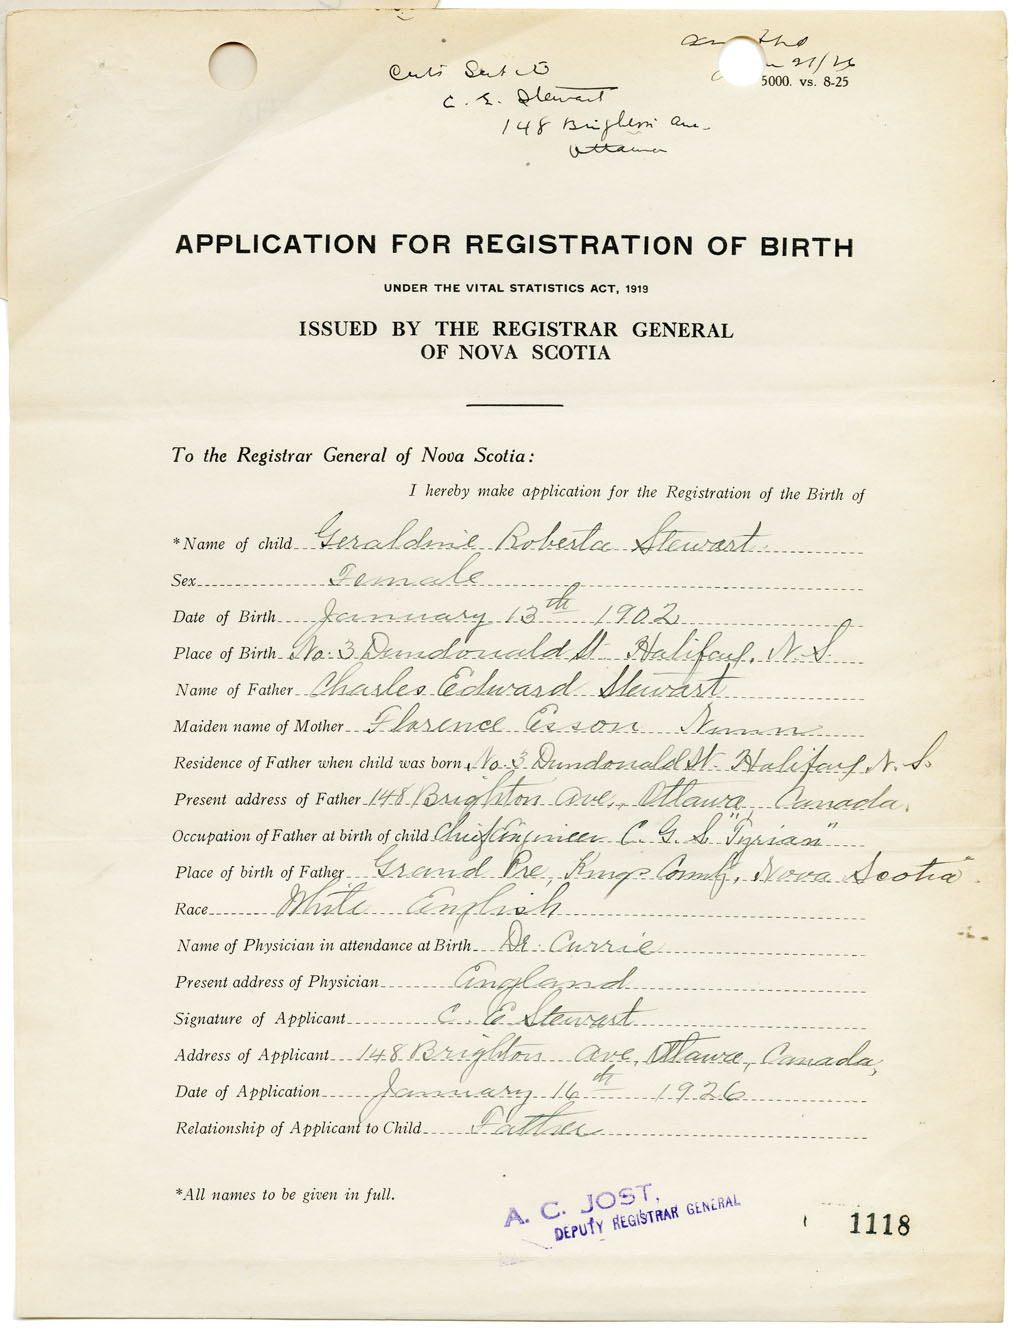 21/26
5000. vs. 8-25
C. E. Stewart
148 Brighton Ave.
Ottawa
APPLICATION FOR REGISTRATION OF BIRTH
UNDER THE VITAL STATISTICS ACT, 1919
ISSUED BY THE REGISTRAR GENERAL
OF NOVA SCOTIA
To the Registrar General of Nova Scotia:
I hereby make application for the Registration of the Birth of
*Name of child Geraldine Roberta Stewart
Sex Female
Date of Birth January 13th 1902
Place of Birth No. 3 Dundonald St Halifax, N.S.
Name of Father Charles Edward Stewart
Maiden name of Mother Florence Esson Nunn
Residence of Father when child was born No. 3 Dundonald St. Halifax, N.S.
Present address of Father 148 Brighton Ave., Ottawa, Canada.
Occupation of Father at birth of child Chief Engineer C. G. S. "Tyrian"
Place of birth of Father Grand Pre, Kings County, Nova Scotia
Race White English
Name of Physician in attendance at Birth Dr. Currie
Present address of Physician England
Signature of Applicant C. E. Stewart
Address of Applicant 148 Brighton Ave, Ottawa, Canada,
Date of Application January 16th 1926
Relationship of Applicant to Child Father
*All names to be given in full.
A. C. JOST,
DEPUTY REGISTRAR GENERAL
1118